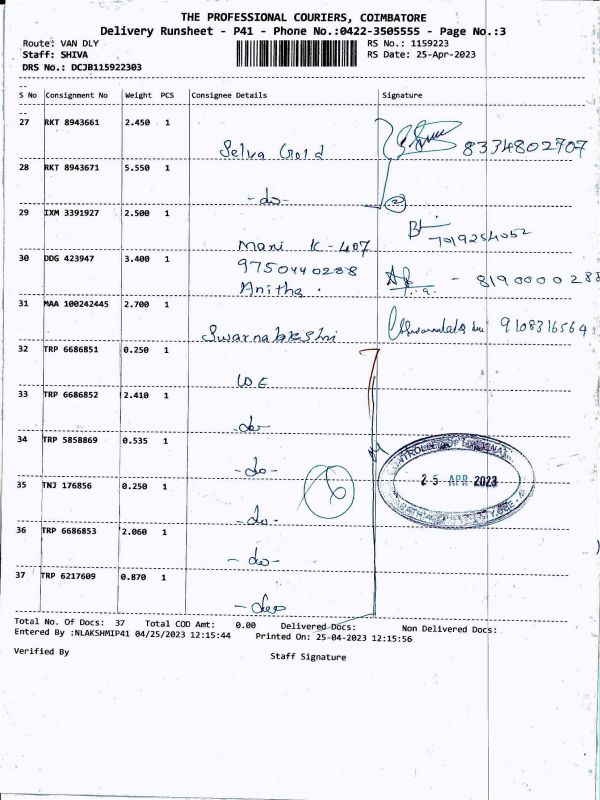 THE PROFESSIONAL COURIERS, COIMBATORE
Delivery Runsheet - P41 - Phone No.:0422-3505555 - Page No.:3
Route: VAN DLY
RS No.: 1159223
Staff: SHIVA
RS Date: 25-Apr-2023
DRS No.: DCJB115922303
S No Consignment No Weight PCS Consignee Details Signature
27 RKT 8943661 2.450 1
Selva Gold 8334802707
28 RKT 8943671 5.550 1
-do- 2
29 IXM 3391927 2.500 1
Mani K-407 7019254052
30 DDG 423947 3.400 1
9750440288
Anitha . - 8190000288
31 MAA 100242445 2.700 1
9108316564
32 TRP 6686851 0.250 1
33 TRP 6686852 2.410 1
-do-
34 TRP 5858869 0.535 1
-do-
25 APR 2023
35 TNJ 176856 0.250 1
6
-do-
36 TRP 6686853 2.060 1
-do-
37 TRP 6217609 0.870 1
-do-
Total No. Of Docs: 37 Total COD Amt: 0.00 Delivered Docs: Non Delivered Docs:
Entered By :NLAKSHMIP41 04/25/2023 12:15:44 Printed On: 25-04-2023 12:15:56
Verified By Staff Signature